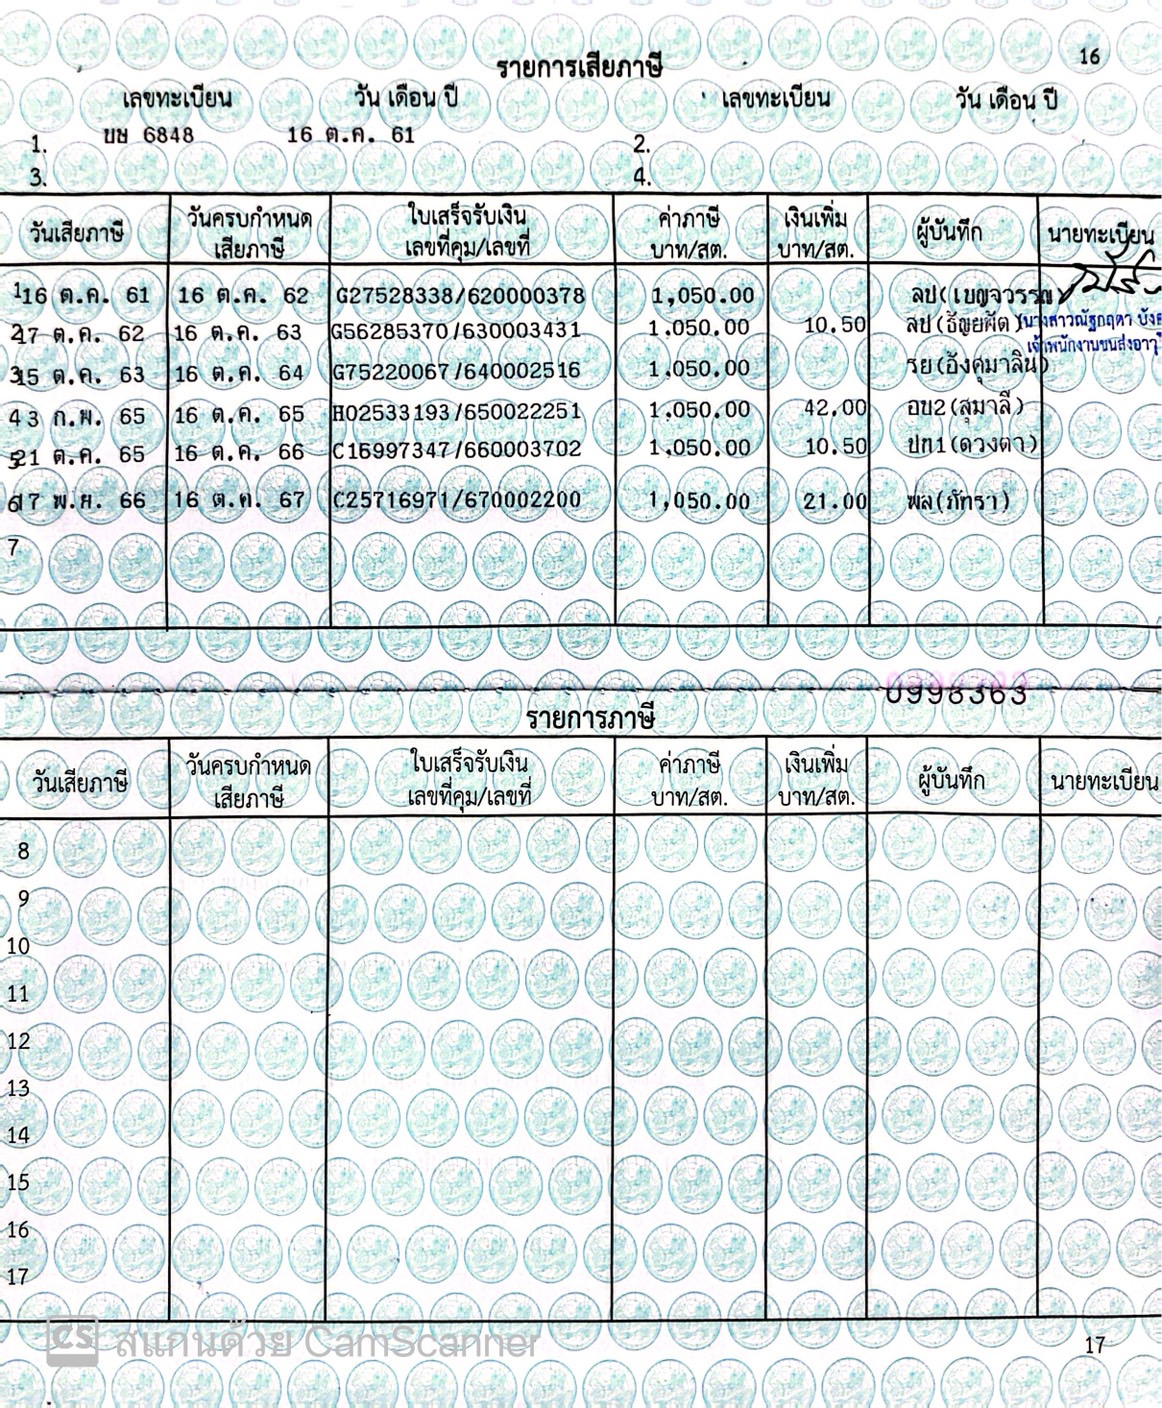 16
รายการเสียภาษี
เลขทะเบียน วัน เดือน ปี เลขทะเบียน วัน เดือน ปี
1. บษ 6848 16 ต.ค. 61 2.
3. 4.
วันเสียภาษี วันครบกำหนดเสียภาษี ใบเสร็จรับเงิน เลขที่คุม/เลขที่ ค่าภาษี บาท/สต. เงินเพิ่ม บาท/สต. ผู้บันทึก นายทะเบียน
1 16 ต.ค. 61 16 ต.ค. 62 G27528338/620000378 1,050.00 ลป(เบญจวรรณ)
2 17 ต.ค. 62 16 ต.ค. 63 G56285370/630003431 1,050.00 10.50 ลป(ธัญยพัต) นางสาวณัฐกฤตา
เจ้าพนักงานขนส่งอาวุ
3 15 ต.ค. 63 16 ต.ค. 64 G75220067/640002516 1,050.00 รย(อังคุมาลิน)
4 3 ก.พ. 65 16 ต.ค. 65 H02533193/650022251 1,050.00 42.00 อบ2(สุมาลี)
5 21 ต.ค. 65 16 ต.ค. 66 C15997347/660003702 1,050.00 10.50 ปท1(ดวงตา)
6 17 พ.ย. 66 16 ต.ค. 67 C25716971/670002200 1,050.00 21.00 พล(ภัทรา)
7
0998363
รายการภาษี
วันเสียภาษี วันครบกำหนดเสียภาษี ใบเสร็จรับเงิน เลขที่คุม/เลขที่ ค่าภาษี บาท/สต. เงินเพิ่ม บาท/สต. ผู้บันทึก นายทะเบียน
8
9
10
11
12
13
14
15
16
17
CS สแกนด้วย CamScanner
17